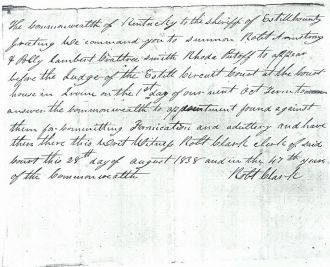 The Commonwealth of Kentucky to the sheriff of Estill County
Greeting We command you to summon Robt Armstrong
& Polly Lambert smith Rhoda to appear
before the Judge of the Estill Circuit Court at the court
house in Irvine on the 1st day of our next Oct
answer the Commonwealth to found against
them for committing Fornication and adultery and have
then there this Writ Witness Robt Clark clerk of said
Court this 28th day of august 1838 and in the 47th year
of the Commonwealth Robt Clark